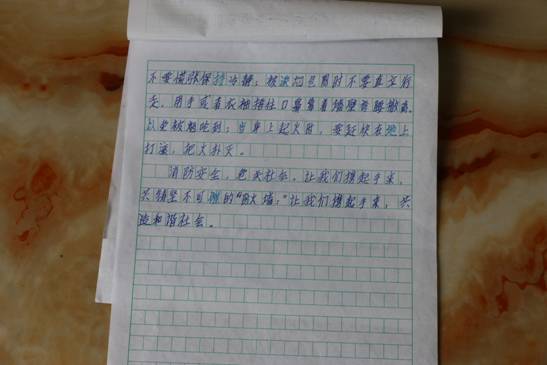 不要慌张保持冷静；被浓烟包围时不要直立行
走，用手或者衣袖捂住口鼻靠着墙壁弯腰撤离，
以免被烟呛到；当身上起火时，要赶快在地上
打滚，把火扑灭。
消防安全，。让我们携起手来，
共铸坚不可摧的“防火墙；”让我们携起手来，共
造和谐社会。